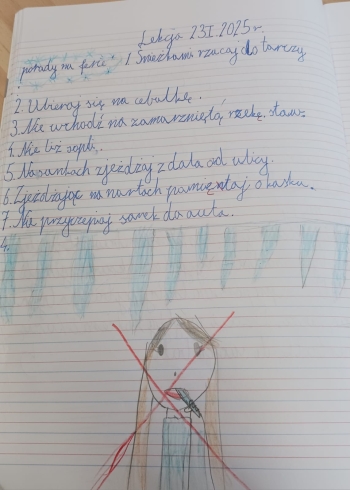 Lekcja 23 I. 2025 r.
porady na ferie 1. Śnieżkami rzucaj do tarczy
2. Ubieraj się na cebulkę.
3. Nie wchodź na zamarzniętą rzekę, staw.
4. Nie liż sopli.
5. Na sankach zjeżdżaj z dala od ulicy.
6. Zjeżdżając na nartach pamiętaj o kasku.
7. Nie przyczepiaj sanek do auta.
4.